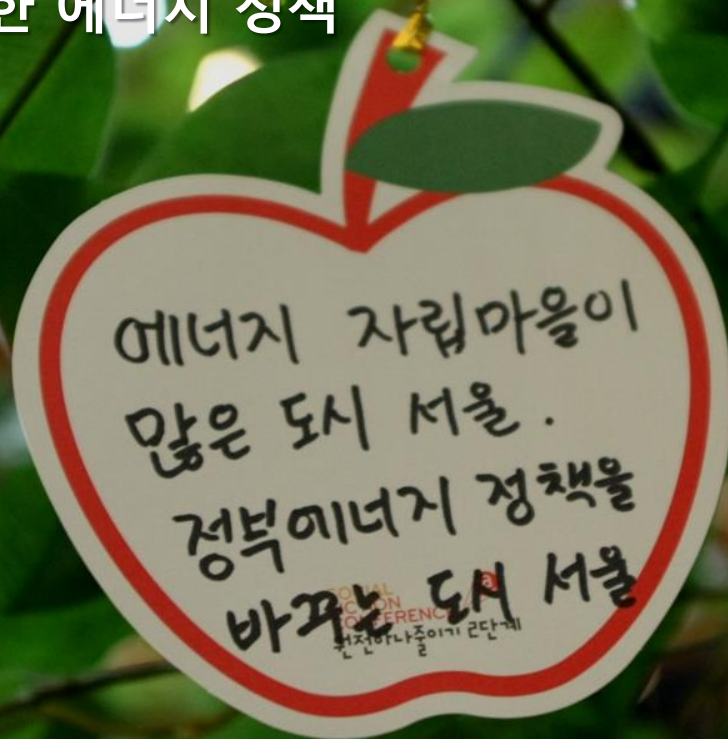 한 에너지 정책
에너지 자립마을이
많은 도시 서울.
정부에너지 정책을
바꾸는 도시 서울
SOCIAL
FICTION
CONFERENCE
원전하나줄이기 2단계